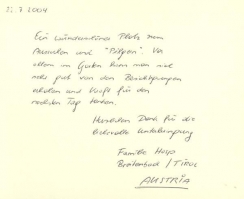 22.7.2004
Ein wunderschöner Platz zum
Ausruhen und "Pilgern". Vor
allem im Garten kann man sich
sehr gut von den Besichtigungen
erholen und Kraft für den
nächsten Tag tanken.
Herzlichen Dank für die
liebevolle Unterbringung
Familie
Breitenbach / Tirol
AUSTRIA